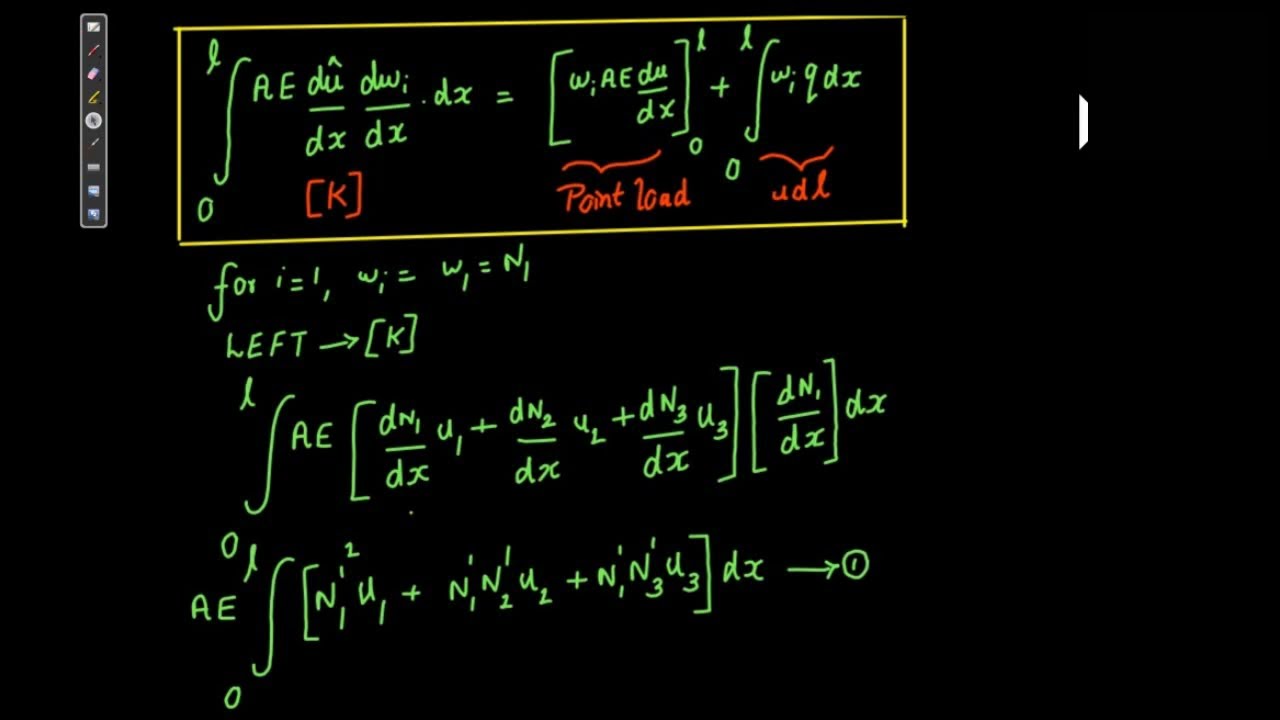 ∫₀ˡ AE dû/dx dwᵢ/dx . dx = [wᵢ AE du/dx]₀ˡ + ∫₀ˡ wᵢ q dx
[K] Point load udl
for i=1, wᵢ = w₁ = N₁
LEFT → [K]
∫₀ˡ AE [dN₁/dx u₁ + dN₂/dx u₂ + dN₃/dx u₃] [dN₁/dx] dx
AE ∫₀ˡ [N₁'² u₁ + N₁' N₂' u₂ + N₁' N₃' u₃] dx → ①